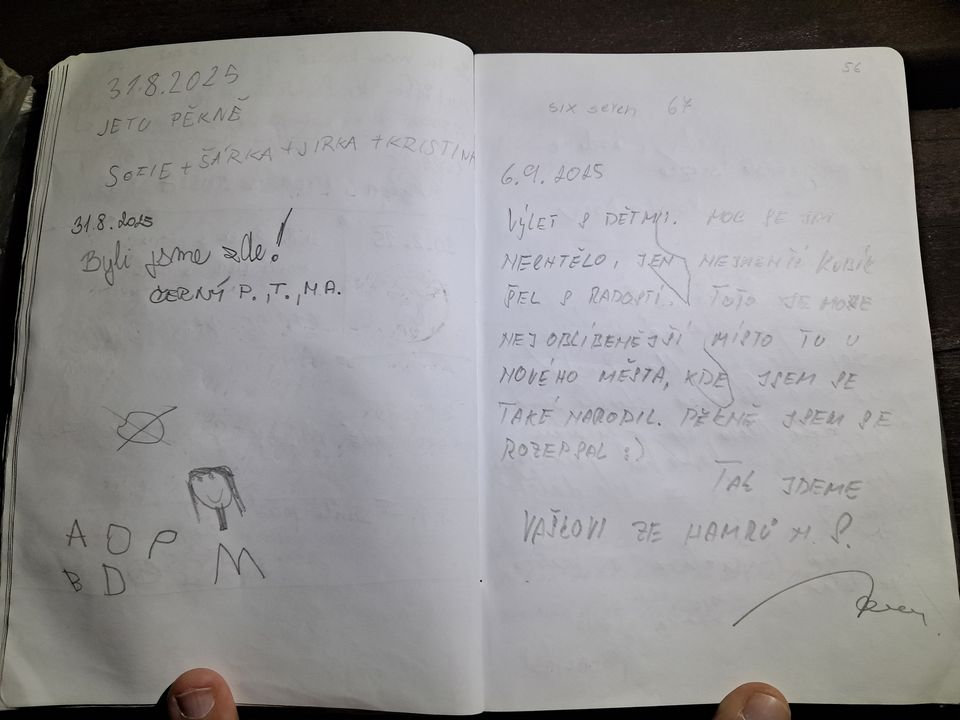 31.8.2025
JETU PĚKNĚ
SOFIE + ŠÁRKA + JIRKA + KRISTINA
31.8.2025
Byli jsme zde!
ČERNÝ P., T., M.A.
A O P
B D M
56
six seven 67
6.9.2025
VÝLET S DĚTMI. MOC SE JIM
NECHTĚLO, JEN NEJMENŠÍ KUBÍK
ŠEL S RADOSTÍ. TOTO JE MOJE
NEJOBLÍBENĚJŠÍ MÍSTO TU U
NOVÉHO MĚSTA, KDE JSEM SE
TAKÉ NARODIL. PĚKNĚ JSEM SE
ROZEPSAL :)
TAK JDEME
VAŠKOVI ZE HAMRŮ N. S.